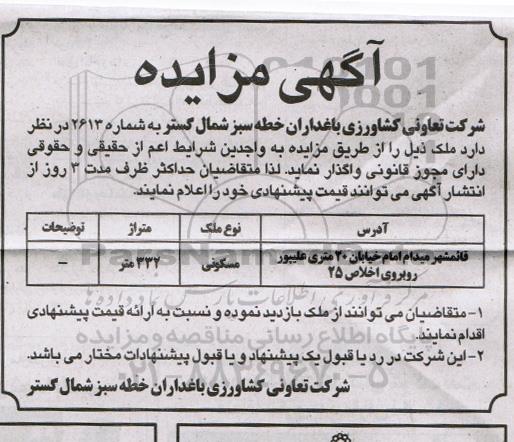 آگهی مزایده
شرکت تعاونی کشاورزی باغداران خطه سبز شمال گستر به شماره ۲۶۱۳ در نظر
دارد ملک ذیل را از طریق مزایده به واجدین شرایط اعم از حقیقی و حقوقی
دارای مجوز قانونی واگذار نماید. لذا متقاضیان حداکثر ظرف مدت ۳ روز از
انتشار آگهی می توانند قیمت پیشنهادی خود را اعلام نمایند.
آدرس نوع ملک متراژ توضیحات
قائمشهر میدام امام خیابان ۲۰ متری علیپور
روبروی اخلاص ۲۵ مسکونی ۳۳۲ متر –
۱- متقاضیان می توانند از ملک بازدید نموده و نسبت به ارائه قیمت پیشنهادی
اقدام نمایند.
۲- این شرکت در رد یا قبول یک پیشنهاد و یا قبول پیشنهادات مختار می باشد.
شرکت تعاونی کشاورزی باغداران خطه سبز شمال گستر